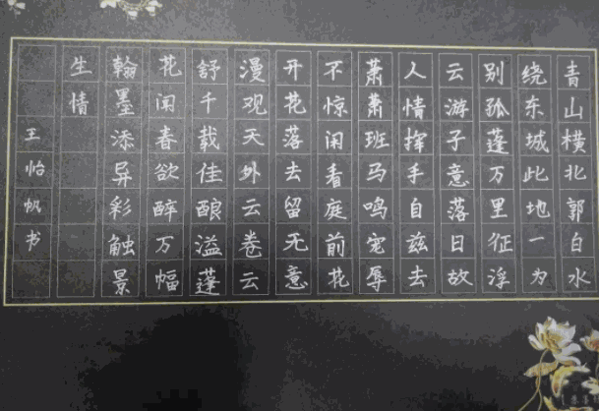 青山横北郭白水
绕东城此地一为
别孤蓬万里征浮
云游子意落日故
人情挥手自兹去
萧萧班马鸣宠辱
不惊闲看庭前花
开花落去留无意
漫观天外云卷云
舒千载佳酿溢蓬
花闻春欲醉万幅
翰墨添异彩触景
生情
王怡帆书